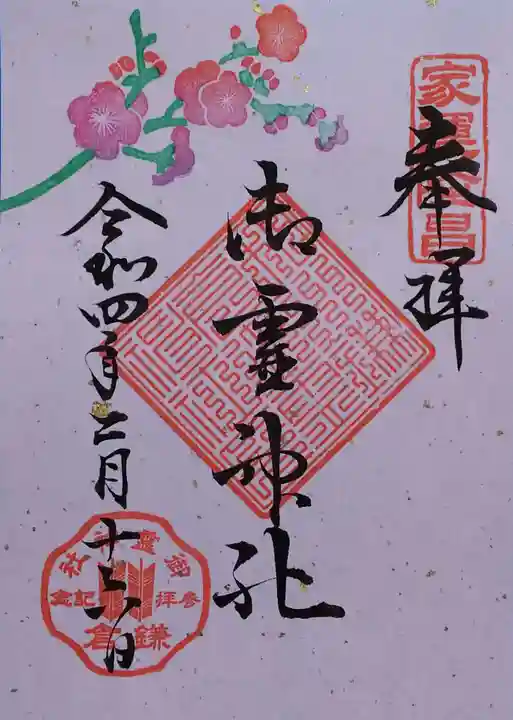 家運隆昌
奉拝
御霊神社
令和四年二月十六日
御霊神社
参拝記念
鎌倉